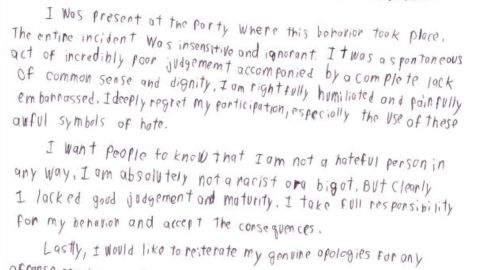 I was present at the party where this behavior took place.
The entire incident was insensitive and ignorant. It was a spontaneous
act of incredibly poor judgement accompanied by a complete lack
of common sense and dignity. I am rightfully humiliated and painfully
embarrassed. I deeply regret my participation, especially the use of these
awful symbols of hate.
I want people to know that I am not a hateful person in
any way. I am absolutely not a racist or a bigot. But clearly
I lacked good judgement and maturity. I take full responsibility
for my behavior and accept the consequences.
Lastly, I would like to reiterate my genuine apologies for any